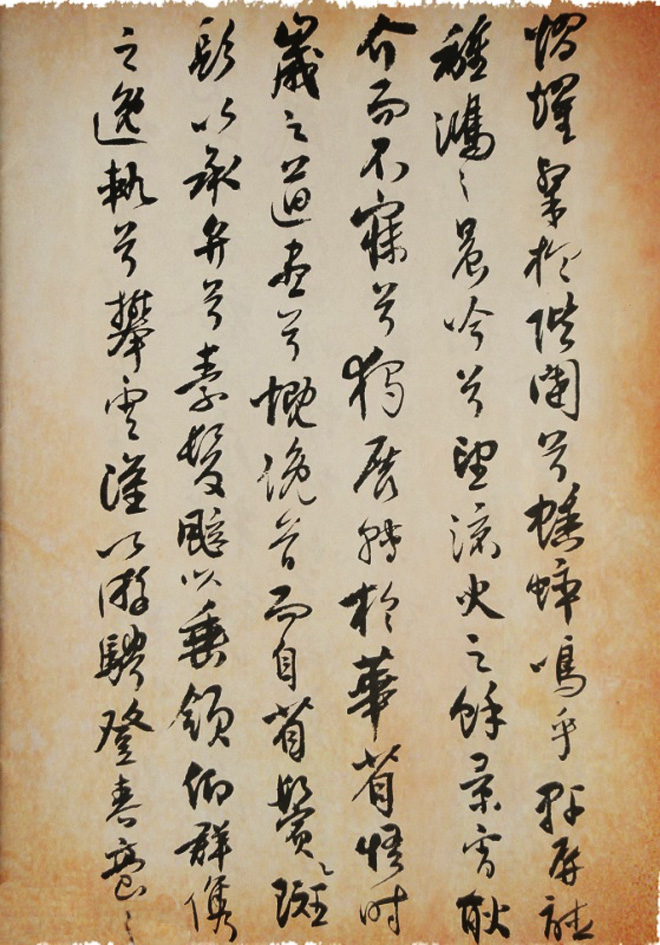 熠耀粲於階闥兮蟋蟀鳴乎軒屏聽
離鴻之晨吟兮望流火之餘景宵耿
介而不寐兮獨展轉於華省悟时
歲之遒盡兮慨俛首而自省鬢斑
髟以承弁兮素髮颯以垂領仰群儁
之逸執兮攀雲漢以游騁登春臺之